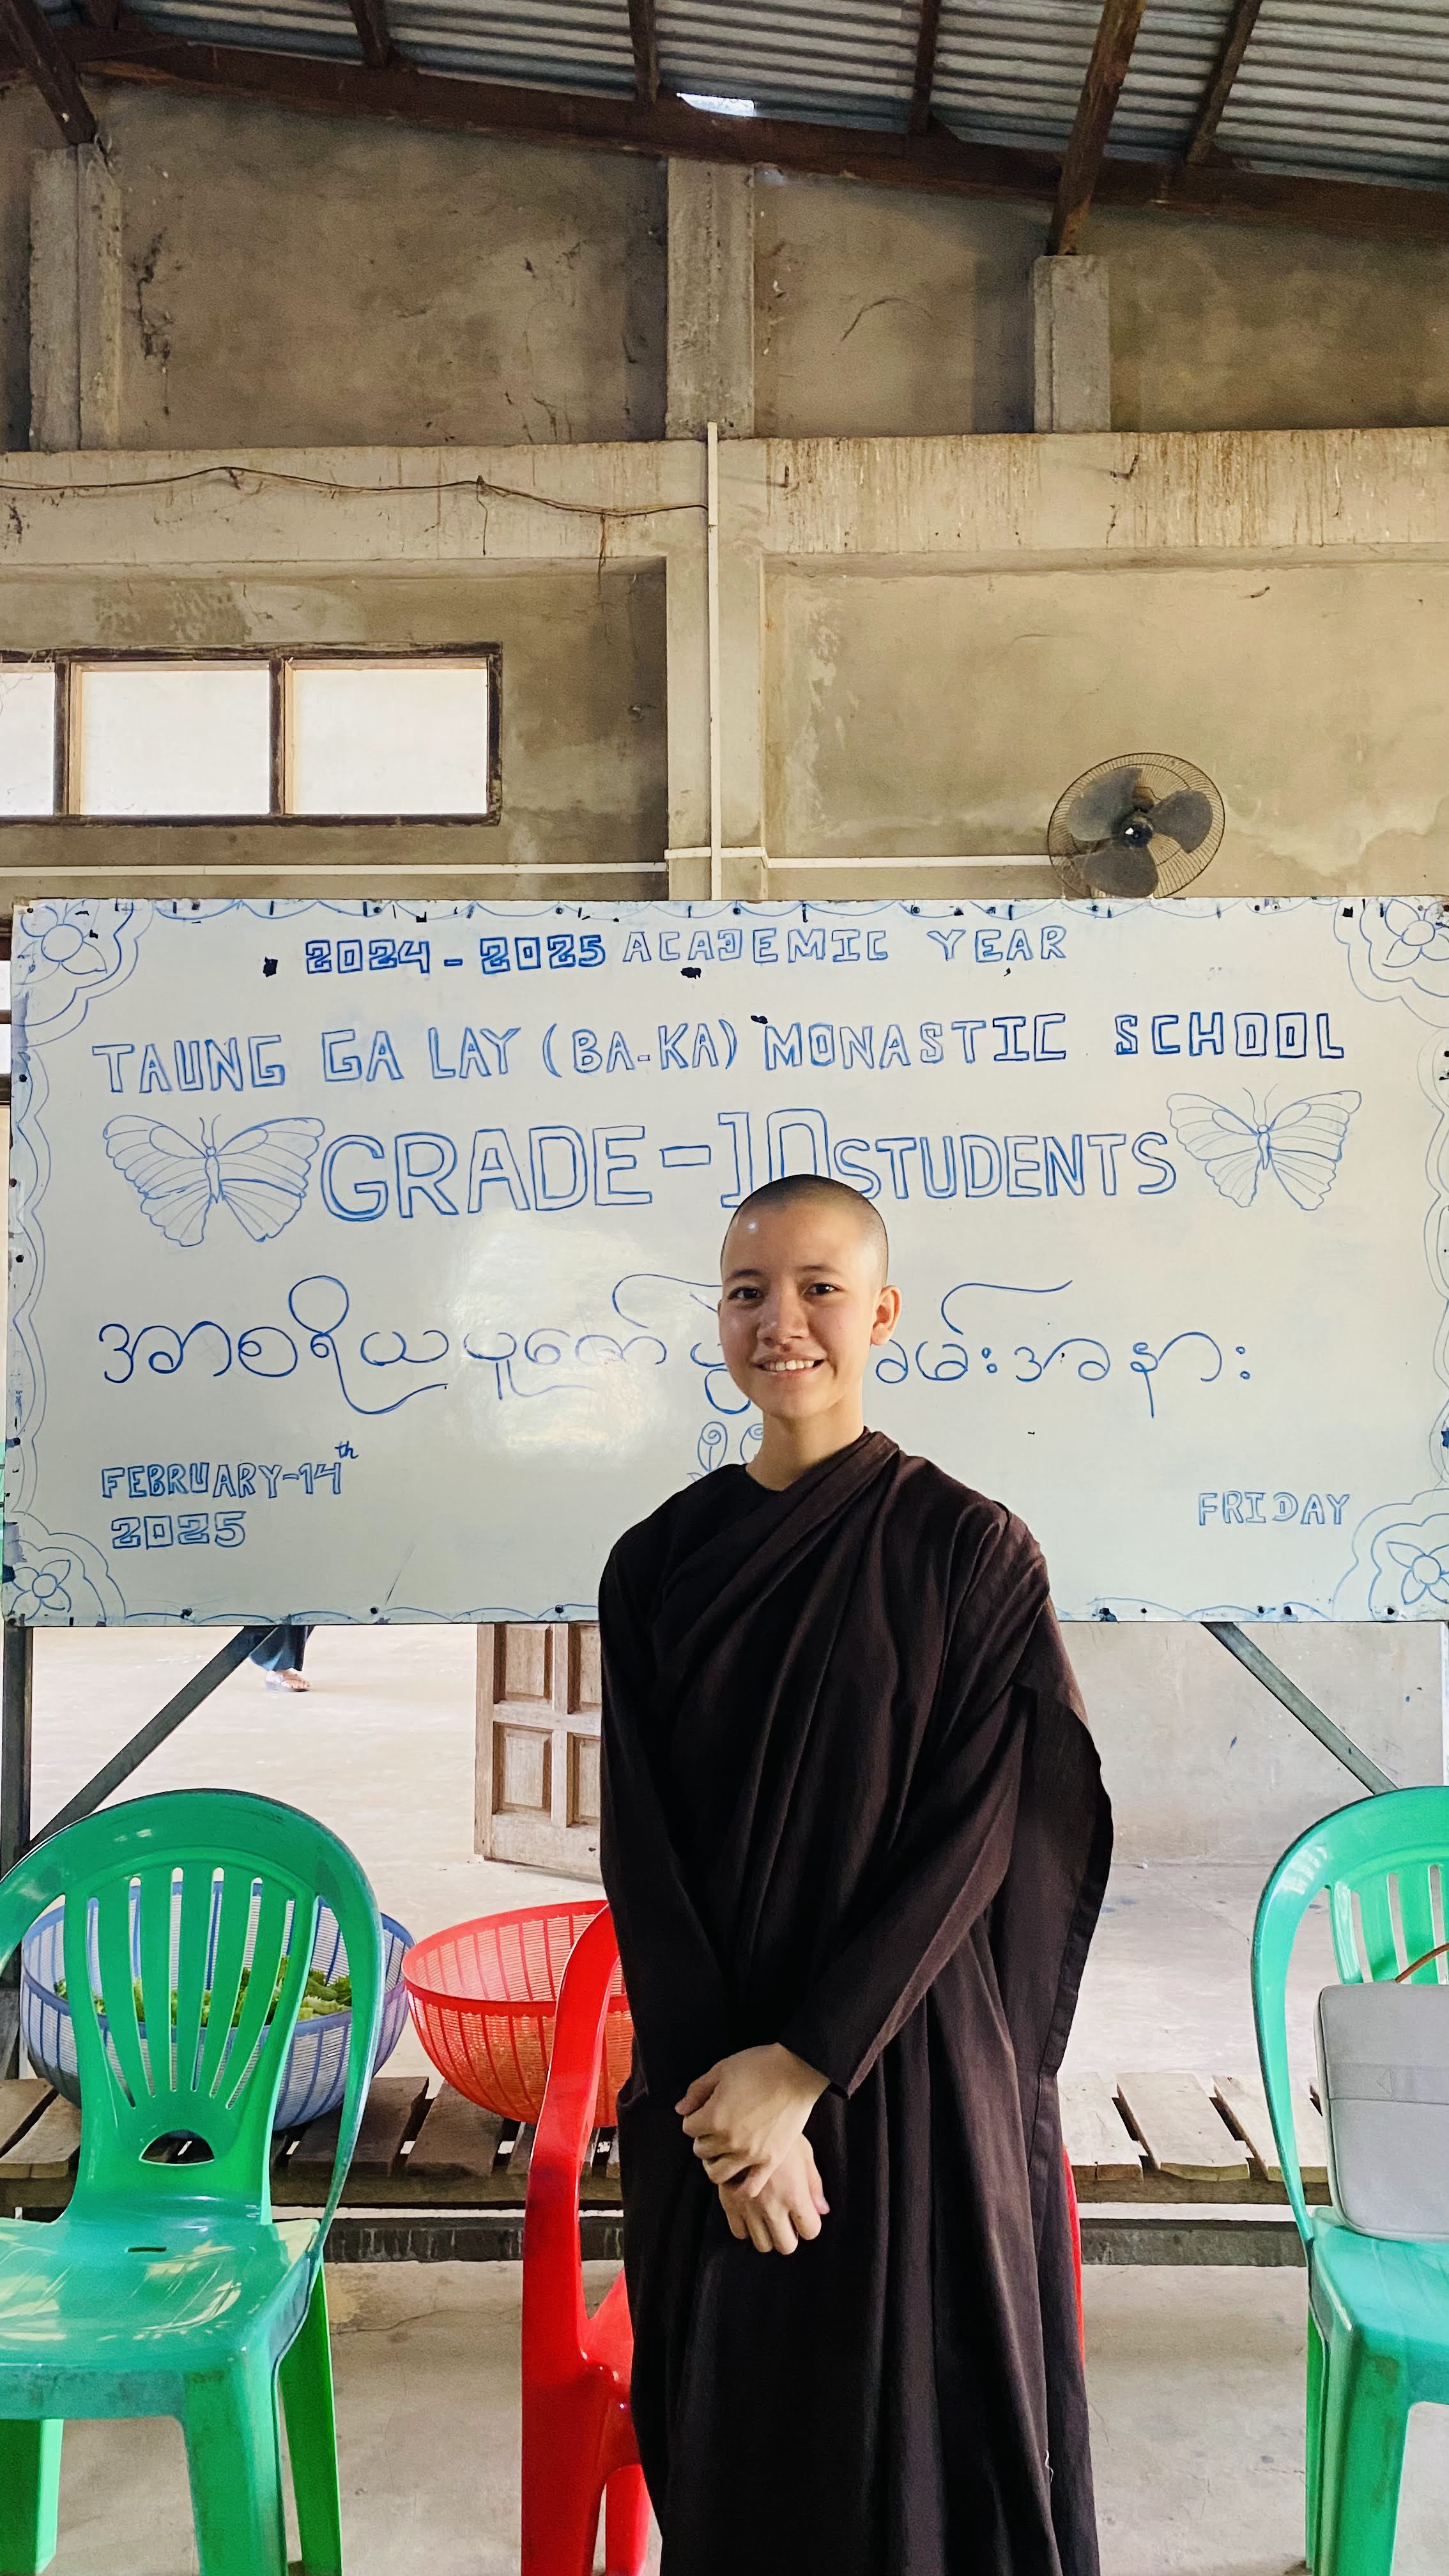 2024-2025 ACADEMIC YEAR
TAUNG GA LAY (BA-KA) MONASTIC SCHOOL
GRADE-10 STUDENTS
အာစရိယပူဇော် အခမ်းအနား
FEBRUARY-14th
2025
FRIDAY